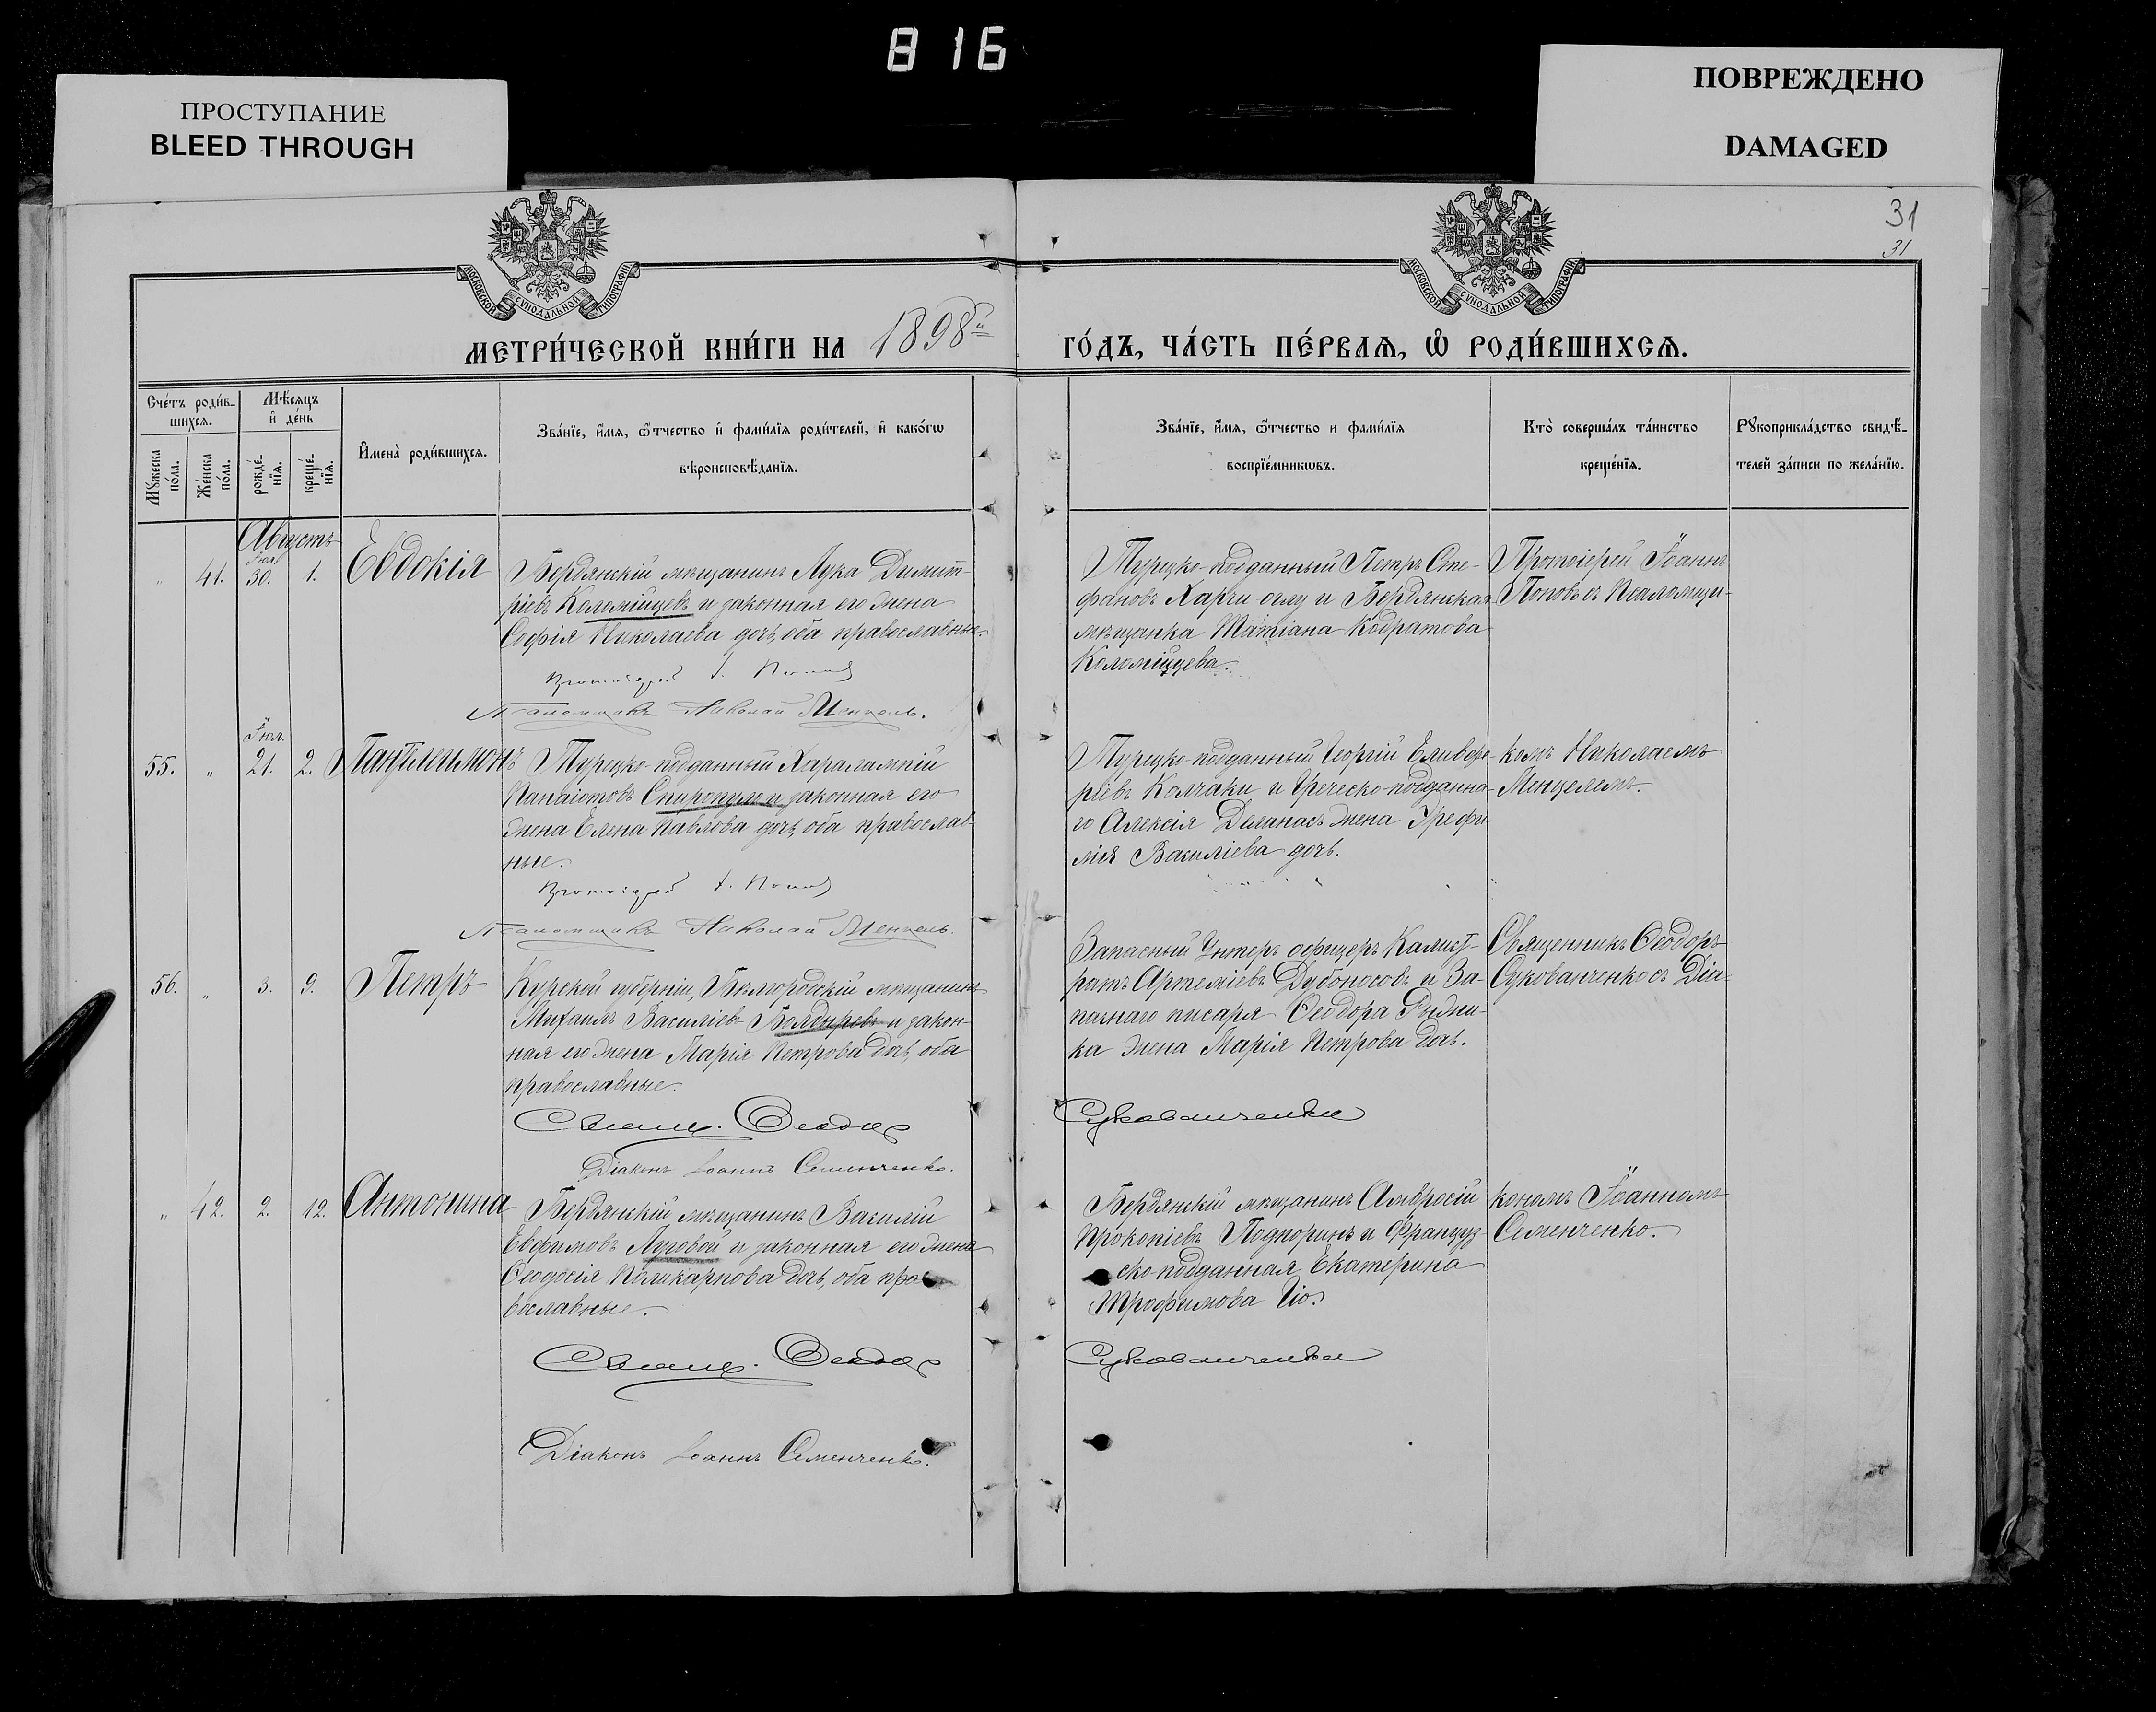 816
ПРОСТУПАНИЕ
BLEED THROUGH
ПОВРЕЖДЕНО
DAMAGED
31
31
МОСКОВСКОЙ СѴНОДАЛЬНОЙ ТИПОГРАФІИ
МОСКОВСКОЙ СѴНОДАЛЬНОЙ ТИПОГРАФІИ
МЕТРИ́ЧЕСКОЙ КНИ́ГИ НА 1898й
ГО́ДЪ, ЧА́СТЬ ПЕ́РВАѦ, Ѡ РОДИ́ВШИХСѦ.
Сче́тъ роди́в-
шихсѧ.
Мѣ́сяцъ
и҆ де́нь
Мꙋ́жеска
по́ла.
Же́нска
по́ла.
рожде́-
нїѧ.
креще́-
нїѧ.
И҆мена̀ роди́вшихсѧ.
Зва́нїе, и҆́мѧ, ѻ҆́тчество и҆ фами́лїѧ роди́телей, и҆ како́гѡ
вѣроисповѣ́данїѧ.
Зва́нїе, и҆́мѧ, ѻ҆́тчество и фами́лїѧ
воспрїе́мникѡвъ.
Кто̀ соверша́лъ та́инство
креще́нїѧ.
Рꙋкоприкла́дство свидѣ́-
телей за́писи по жела́нїю.
Августъ
Іюл.
„ 41. 30. 1. Евдокія
Бердянскій мѣщанинъ Лука Димит-
ріевъ Коломійцевъ и законная его жена
Софія Николаева дочь, оба православные.
Протоіерей І. Поповъ
Псаломщикъ Николай Менцель.
Турецко-подданный Петръ Сте-
фановъ Харчи-оглу и Бердянская
мѣщанка Татіана Кодратова
Коломійцева.
Протоіерей Іоаннъ
Поповъ съ Псаломщи-
Іюл.
55. „ 21. 2. Пантелеимонъ
Турецко-подданный Харалампій
Панаіотовъ Спиропуло и законная его
жена Елена Павлова дочь, оба православ-
ные.
Протоіерей І. Поповъ
Псаломщикъ Николай Менцель.
Турецко-подданный Георгій Елевфе-
ріевъ Колчаки и Греческо-поддана-
го Алексія Деланасъ жена
Василіева дочь.
комъ Николаемъ
Менцелемъ.
56. „ 3. 9. Петръ
Курской губерніи, Бѣлгородскій мѣщанинъ
Михаилъ Василіевъ Болдыревъ и закон-
ная его жена Марія Петрова дочь, оба
православные.
Свящ. Ѳеодоръ
Діаконъ Іоаннъ Семенченко.
Запасный Унтеръ офицеръ Калист-
ратъ Артеміевъ Дубоносовъ и За-
паснаго писаря Ѳеодора
жена Марія Петрова дочь.
Сукованченко
Священникъ Ѳеодоръ
Сукованченко съ Діа-
„ 42. 2. 12. Антонина
Бердянскій мѣщанинъ Василій
Евфимовъ Луговой и законная его жена
Ѳеодосія Поликарпова дочь, оба пра-
вославные.
Свящ. Ѳеодоръ
Діаконъ Іоаннъ Семенченко.
Бердянскій мѣщанинъ Амвросій
Прокопіевъ Подпоринъ и Француз-
ско-подданная Екатерина
Трофимова Гіо.
Сукованченко
кономъ Іоанномъ
Семенченко.